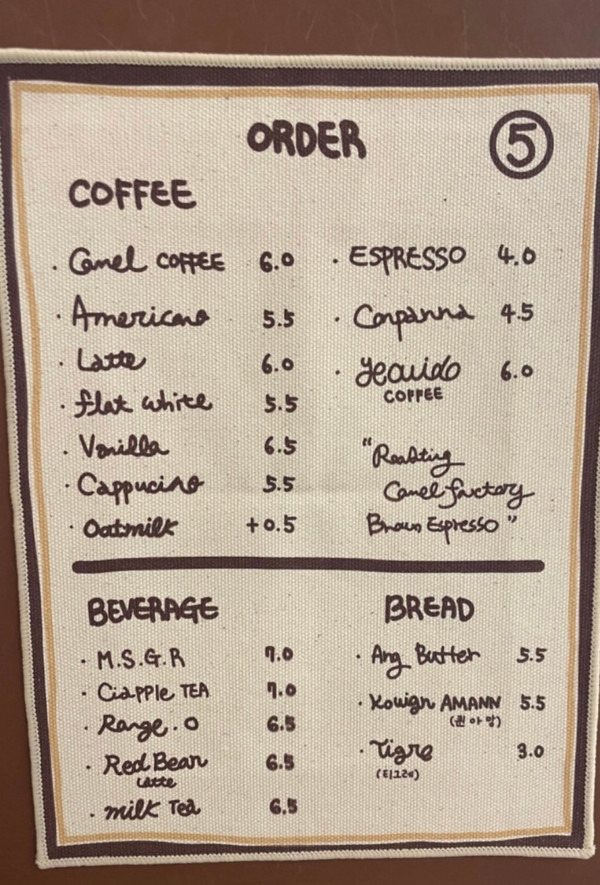 ORDER
5
COFFEE
· Camel COFFEE 6.0
· Americano 5.5
· Latte 6.0
· flat white 5.5
· Vanilla 6.5
· Cappucino 5.5
· Oatmilk +0.5
· ESPRESSO 4.0
· Conpanna 4.5
· yeouido 6.0
COFFEE
"Roasting
Camel factory
Brown Espresso"
BEVERAGE
· M.S.G.R 7.0
· Ciapple TEA 7.0
· Range.O 6.5
· Red Bean 6.5
Latte
· milk Tea 6.5
BREAD
· Ang Butter 5.5
· Kouign AMANN 5.5
(퀸아망)
· Tigre 3.0
(티그레)